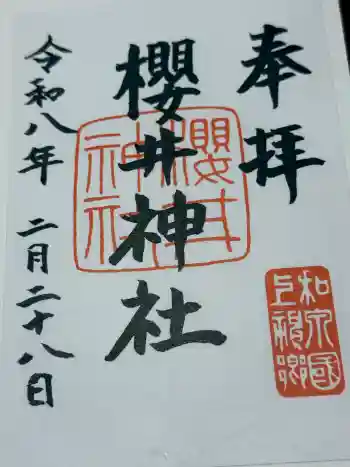 奉拝
櫻井神社
令和八年 二月二十八日
櫻井
神社
和泉國
上神郷